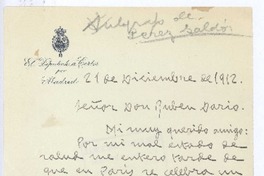 Autografo de
Perez Galdós
El Diputado a Cortes
por
Madrid
21 de Diciembre de 1912.
Señor Don Ruben Dario.
Mi muy querido amigo:
Por mi mal estado de
salud me entero tarde de
que en Paris se celebra un